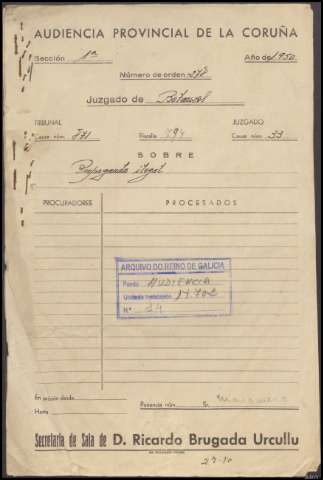 AUDIENCIA PROVINCIAL DE LA CORUÑA
Sección 1ª Año de 1950
Número de orden 278
Juzgado de Betanzos
TRIBUNAL JUZGADO
Causa núm. 871 Fiscalía 494 Causa núm. 53
SOBRE
Propaganda ilegal
PROCURADORES PROCESADOS
ARQUIVO DO REINO DE GALICIA
Fondo AUDIENCIA
Unidade Instalación
Nº 24
En prisión desde
Ponencia núm. Sr.
Hora
Secretaría de Sala de D. Ricardo Brugada Urcullu
27-10